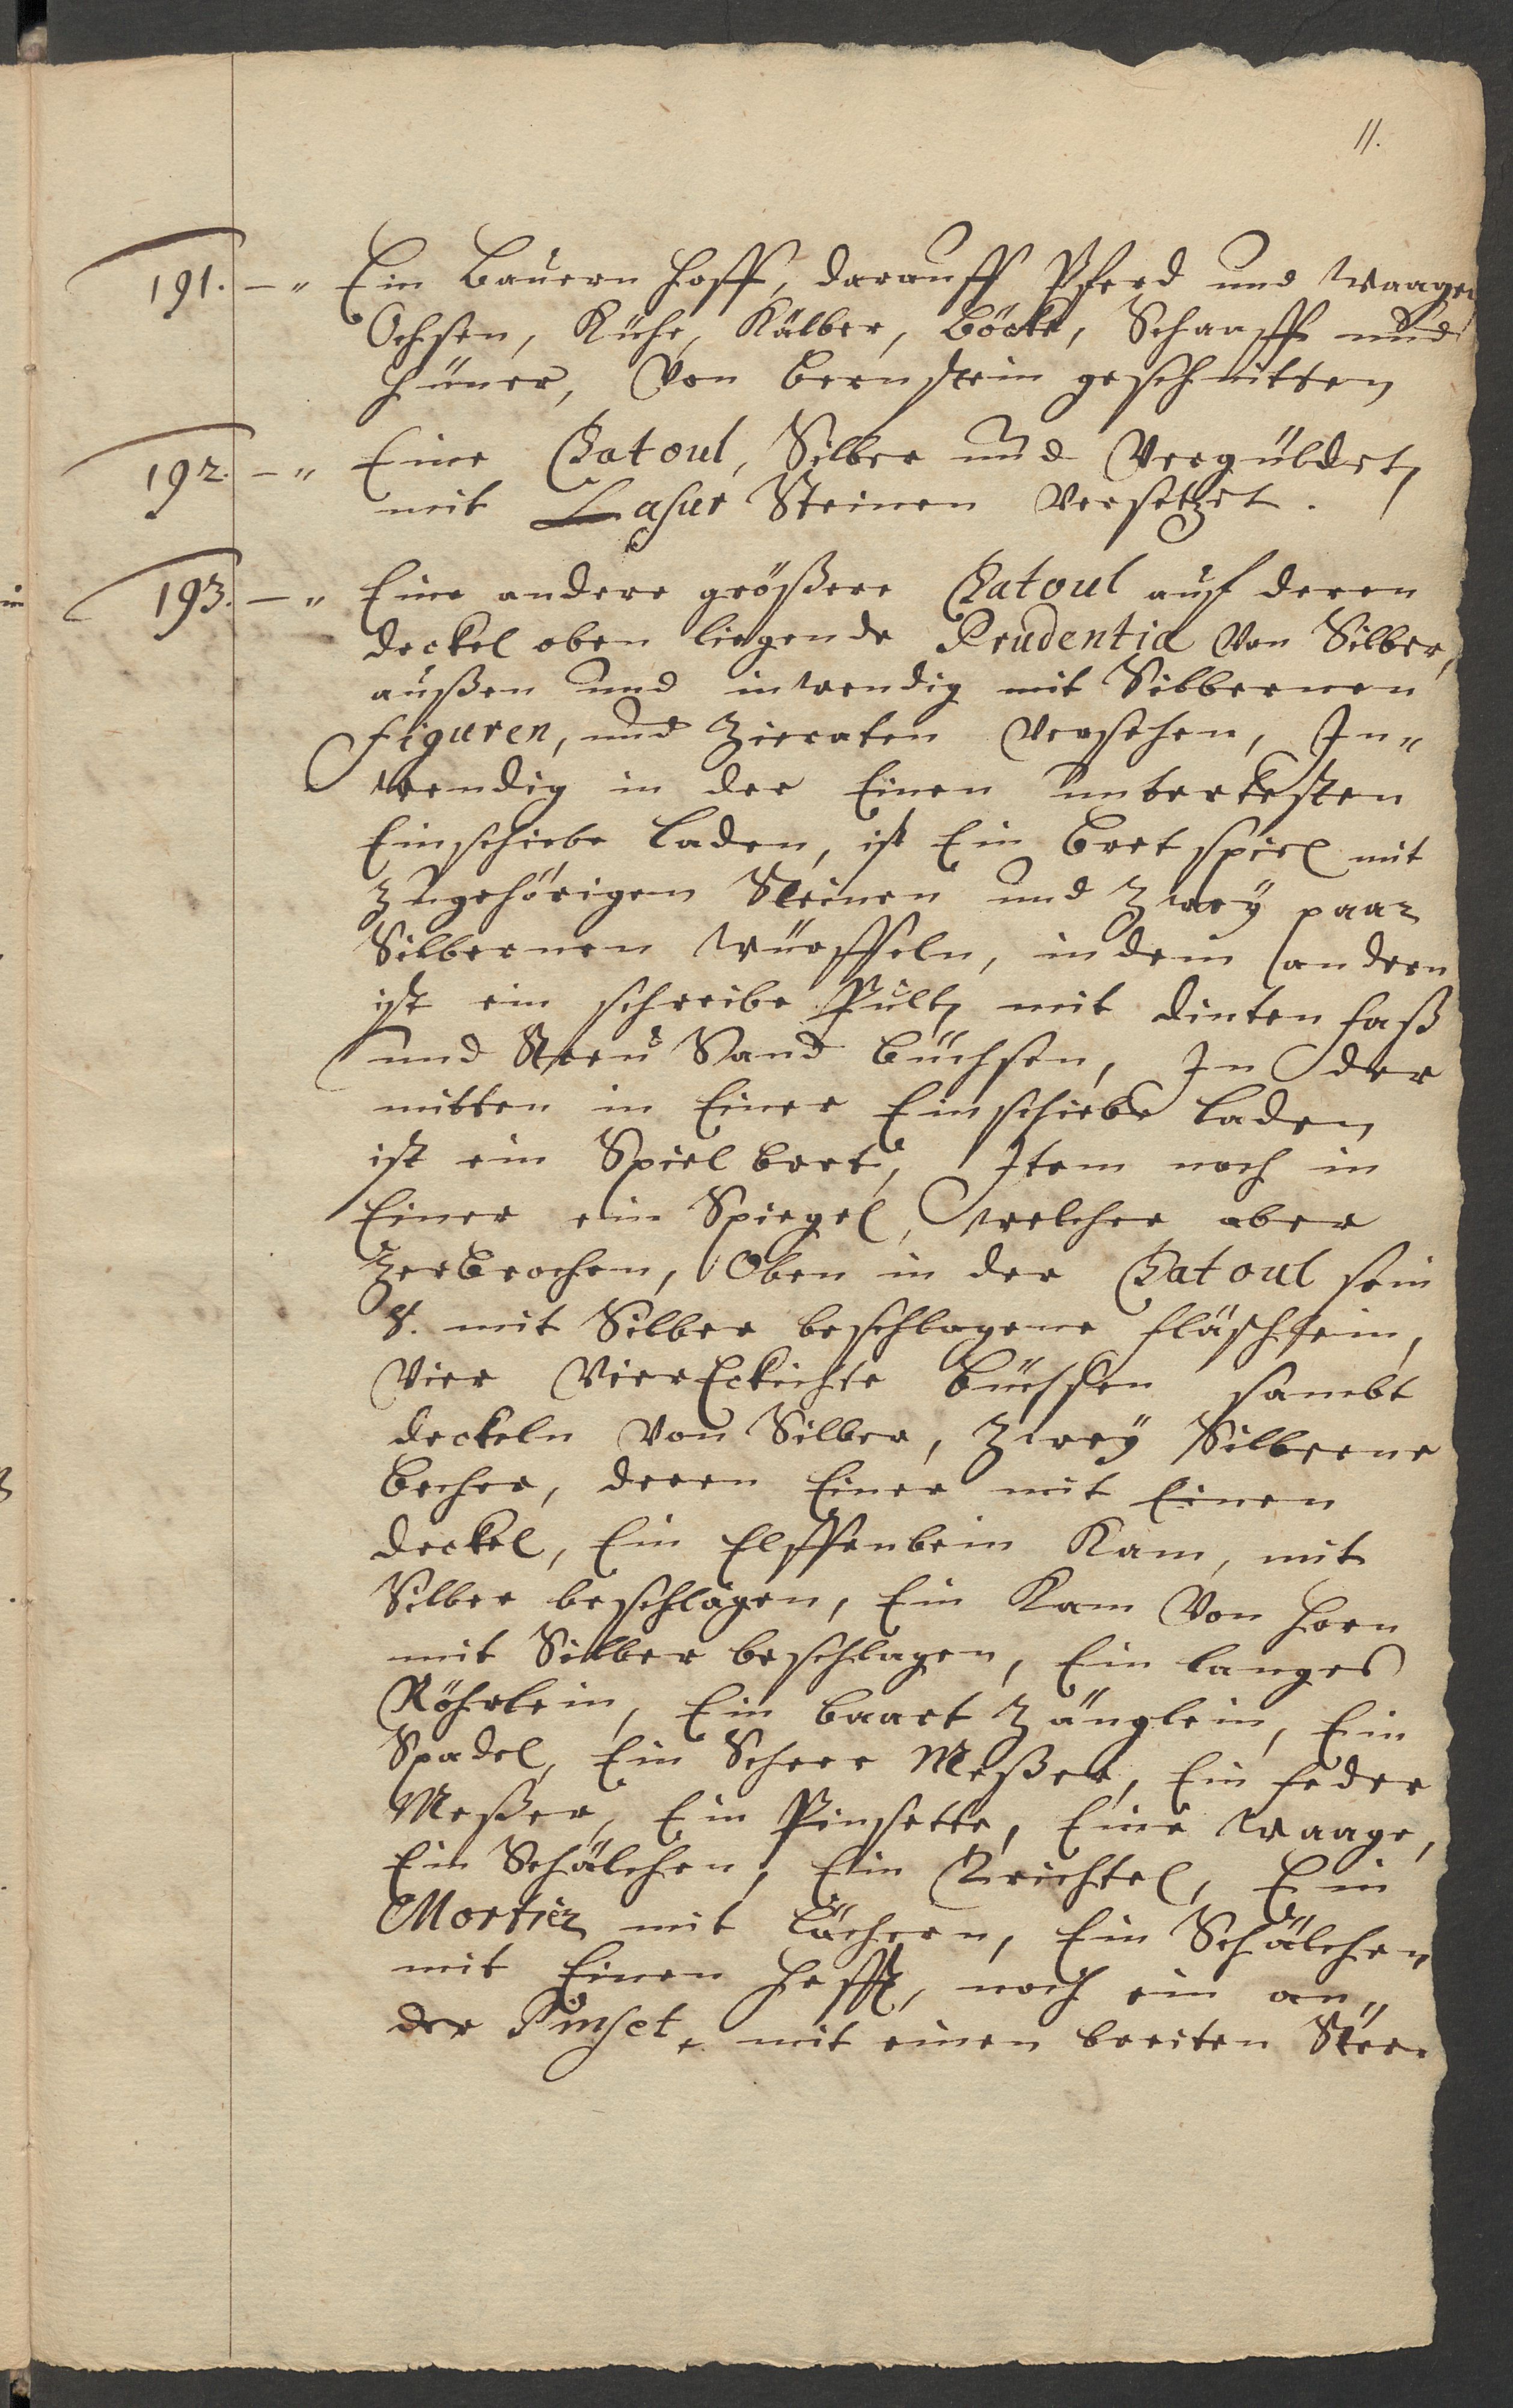 11.
191. -„ Ein Bauern Hoff, darauff Pferd und Waagen
Ochsen, Kühe, Kälber, Böcke, Schaaffe und
Hüner, Von Bernstein geschnitten
192. -„ Eine Chatoul, Silber und Vergüldet,
mit Lasur Steinen Versetzet.
193. -„ Eine andere größere Chatoul auf deren
deckel oben liegende Prudentia Von Silber,
außen und inwendig mit Silbernen
figuren, und Zieraten Versehen, In„
wendig in der Einen untersten
Einschiebe Laden, ist Ein Bret spiel mit
Zugehörigen Steinen und Zweÿ paar
Silbernen Würffeln, in dem andern
ist ein schreibe Pult, mit dinten faß
und Streu Sand Büchsen, In der
mitten in Einer Einschiebe Laden
ist ein Spiel bret, Item noch in
Einer ein Spiegel, welcher aber
Zerbrochen, Oben in der Chatoul sein
8. mit Silber beschlagene fläschlein,
Vier VierEckichte Büchsen sambt
deckeln Von Silber, Zweÿ Silberne
Becher, deren Einer mit Einen
deckel, Ein Elffenbein Kam, mit
Silber beschlagen, Ein Kam Von Horn
mit Silber beschlagen, Ein langes
Röhrlein, Ein Baart Zänglein, Ein
Spadel, Ein Scheer Meßer, Ein feder
Meßer, Ein Pinsette, Eine Waage,
Ein Schälchen, Ein Trichtel, Ein
Mortier mit Löchern, Ein Schälchen
mit Einen Hefft, noch ein an„
der Pinset, mit einen breiten